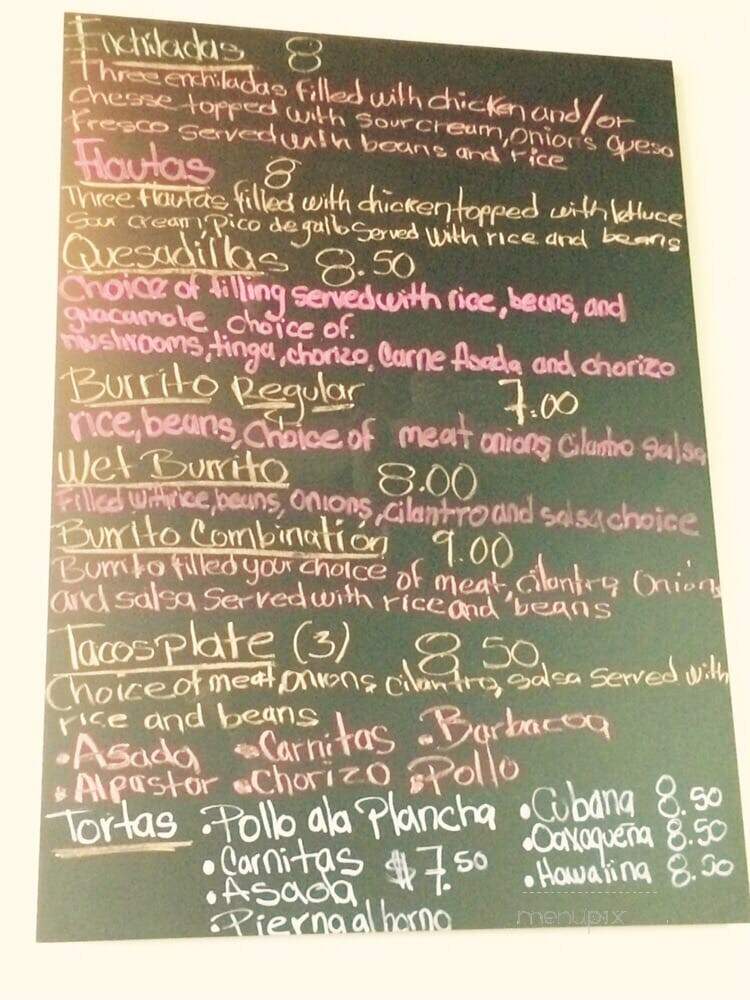 Enchiladas 8
Three enchiladas filled with chicken and/or
chesse topped with sour cream, onions queso
fresco served with beans and rice
Flautas 8
Three flautas filled with chicken topped with lettuce
sour cream, pico de gallo served with rice and beans
Quesadillas 8.50
Choice of filling served with rice, beans, and
guacamole, choice of.
mushrooms, tinga, chorizo, Carne Asada and chorizo
Burrito Regular 7.00
rice, beans, choice of meat onions cilantro salsa
Wet Burrito 8.00
Filled with rice, beans, onions, cilantro and salsa choice
Burrito Combination 9.00
Burrito filled your choice of meat, cilantro, Onions
and salsa served with rice and beans
Tacos plate (3) 8 50
Choice of meat, onions, cilantro, salsa served with
rice and beans
• Asada • Carnitas • Barbacoa
• Alpastor • Chorizo • Pollo
Tortas • Pollo ala Plancha • Cubana 8.50
• Carnitas $7.50 • Oaxaqueña 8.50
• Asada • Hawaiina 8.50
• Pierna al horno
menupix